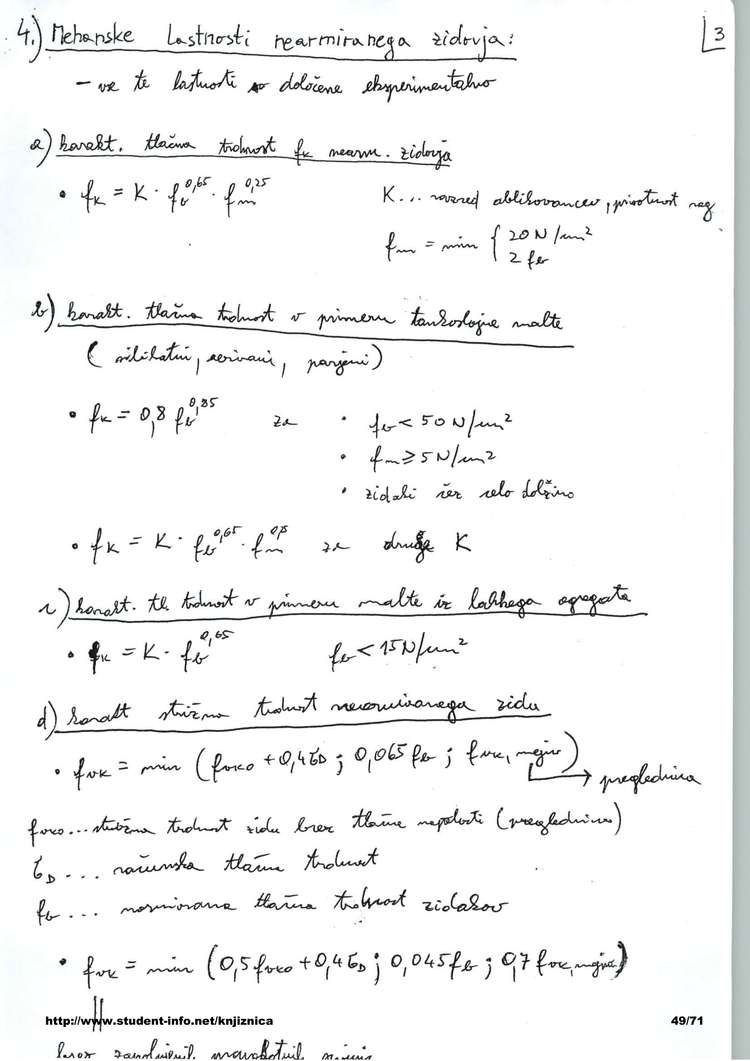 4.) Mehanske lastnosti nearmiranega zidovja: 3
- vse te lastnosti so določene eksperimentalno
a) karakt. tlačna trdnost fk nearm. zidovja
• fk = K · fb^0,65 · fm^0,25 K... razred oblikovancev, prisotnost
fm = min { 20 N/mm²
2 fb
b) karakt. tlačna trdnost v primeru tankoslojne malte
(silikatni, porjeni)
• fk = 0,8 fb^0,85 za • fb < 50 N/mm²
• fm ≥ 5 N/mm²
• zidaki čez celo dolžino
• fk = K · fb^0,65 · fm za druge K
c) karakt. tl. trdnost v primeru malte iz lahkega agregata
• fk = K · fb^0,65 fb < 15 N/mm²
d) karakt strižna trdnost nearmiranega zidu
• fvk = min (fvko + 0,4 σD ; 0,065 fb ; fvk, mejna) → preglednica
fvko... strižna trdnost zidu brez tlačne napetosti (preglednica)
σD ... računska tlačna trdnost
fb ... normirana tlačna trdnost zidakov
• fvk = min (0,5 fvko + 0,4 σD ; 0,045 fb ; 0,7 fvk, mejna)
http://www.student-info.net/knjiznica 49/71
brez